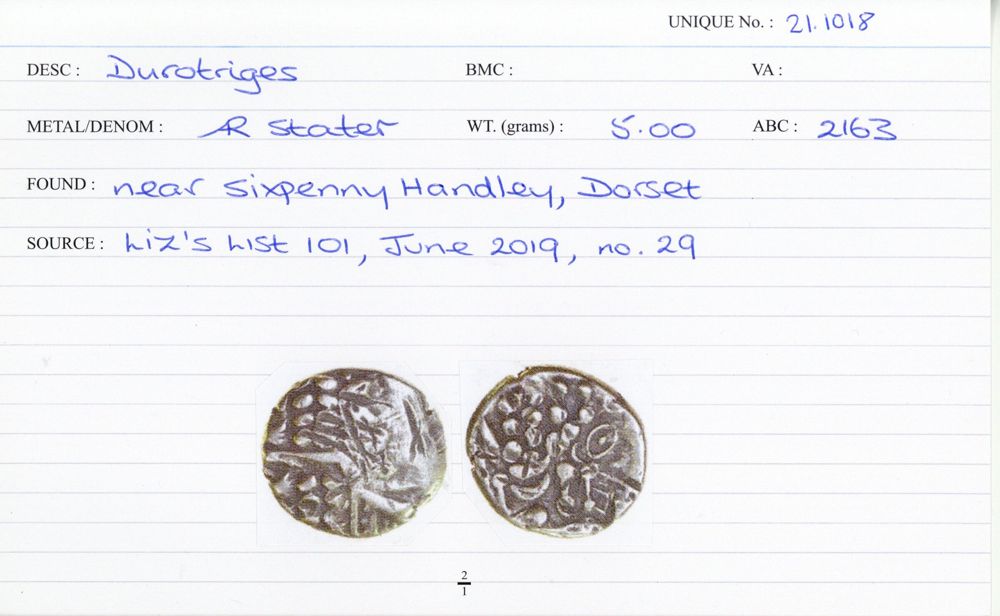 UNIQUE No. : 21.1018
DESC : Durotriges BMC : VA :
METAL/DENOM : AR Stater WT. (grams) : 5.00 ABC : 2163
FOUND : near Sixpenny Handley, Dorset
SOURCE : Liz's List 101, June 2019, no. 29
2
1